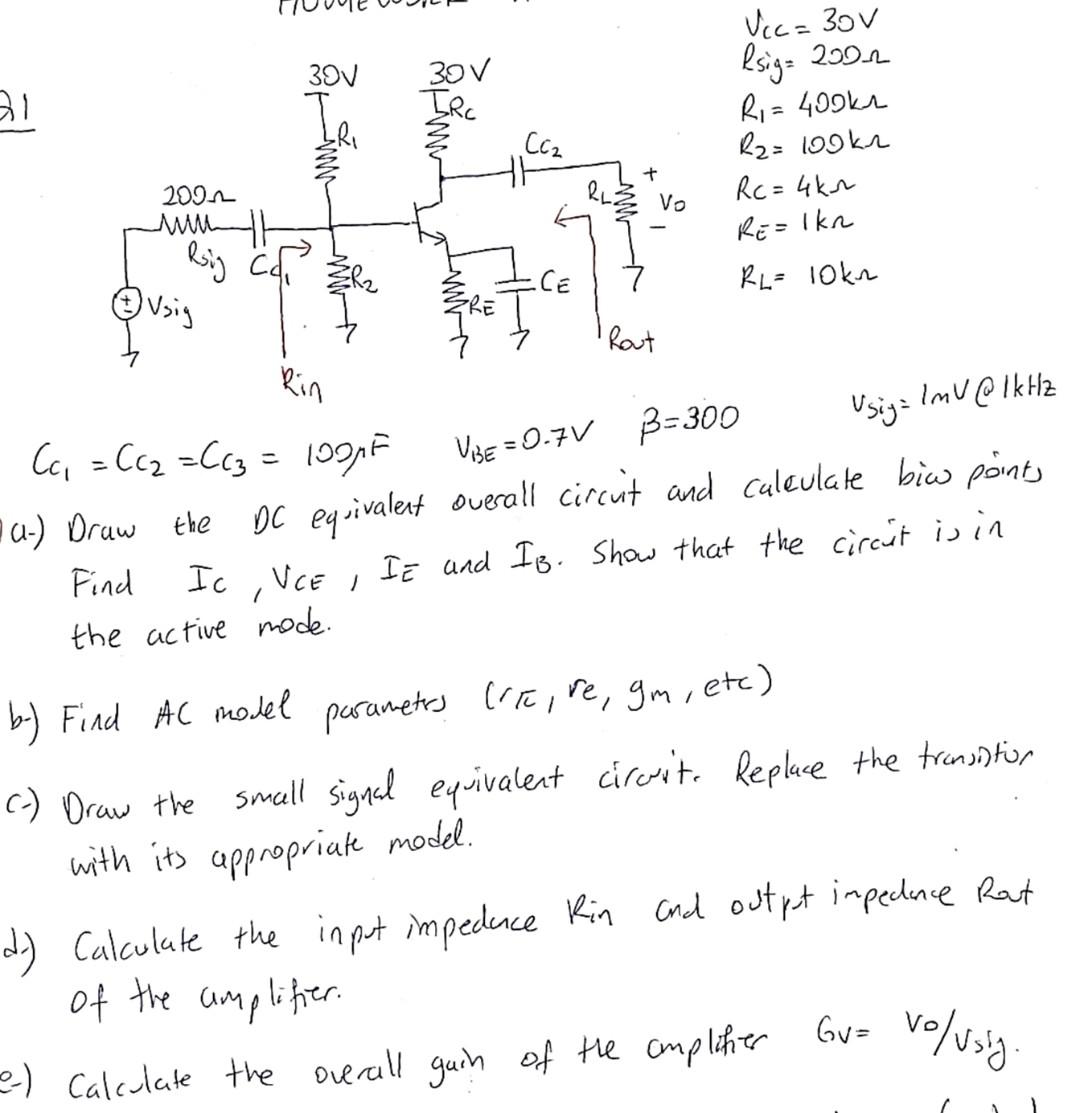 Q1
Vcc = 30V
Rsig= 200Ω
R1= 400kΩ
R2= 100kΩ
RC= 4kΩ
RE= 1kΩ
RL= 10kΩ
30V
30V
RC
R1
CC2
200Ω
RL
+
Vo
-
Rsig
CC1
R2
CE
RE
Vsig
Rout
Rin
Vsig= 1mV@1kHz
CC1 = CC2 = CC3 = 100μF VBE=0.7V β=300
a-) Draw the DC equivalent overall circuit and calculate bias points
Find IC , VCE , IE and IB. Show that the circuit is in
the active mode.
b-) Find AC model parametrs (rπ, re, gm, etc)
c-) Draw the small signal equivalent circuit. Replace the transistor
with its appropriate model.
d-) Calculate the input impedence Rin and output impedence Rout
of the amplifier.
e-) Calculate the overall gain of the amplifier Gv= Vo/Vsig.